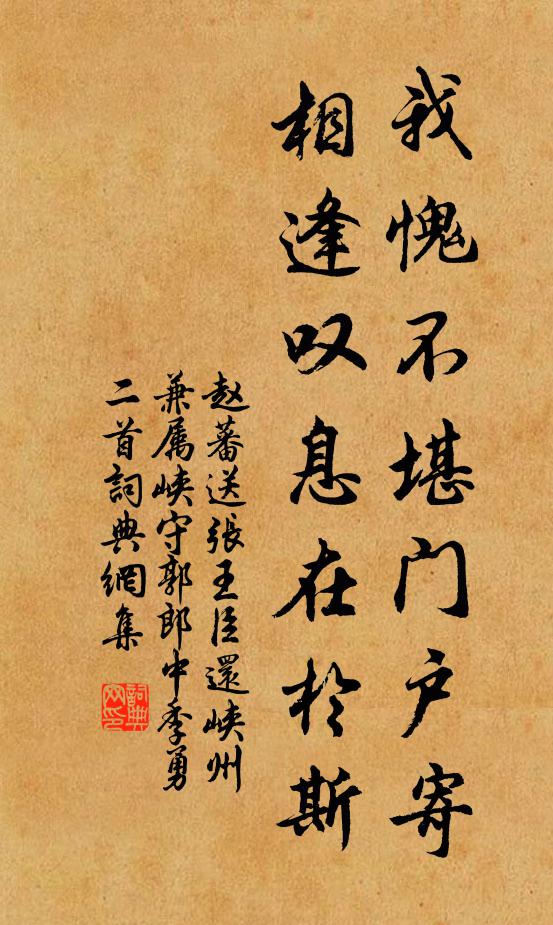 我愧不堪门户寄
相逢叹息在於斯
赵蕃送張王臣還峽州
兼属峽守郭郎中季勇
二首詞典網集
詞典
网印